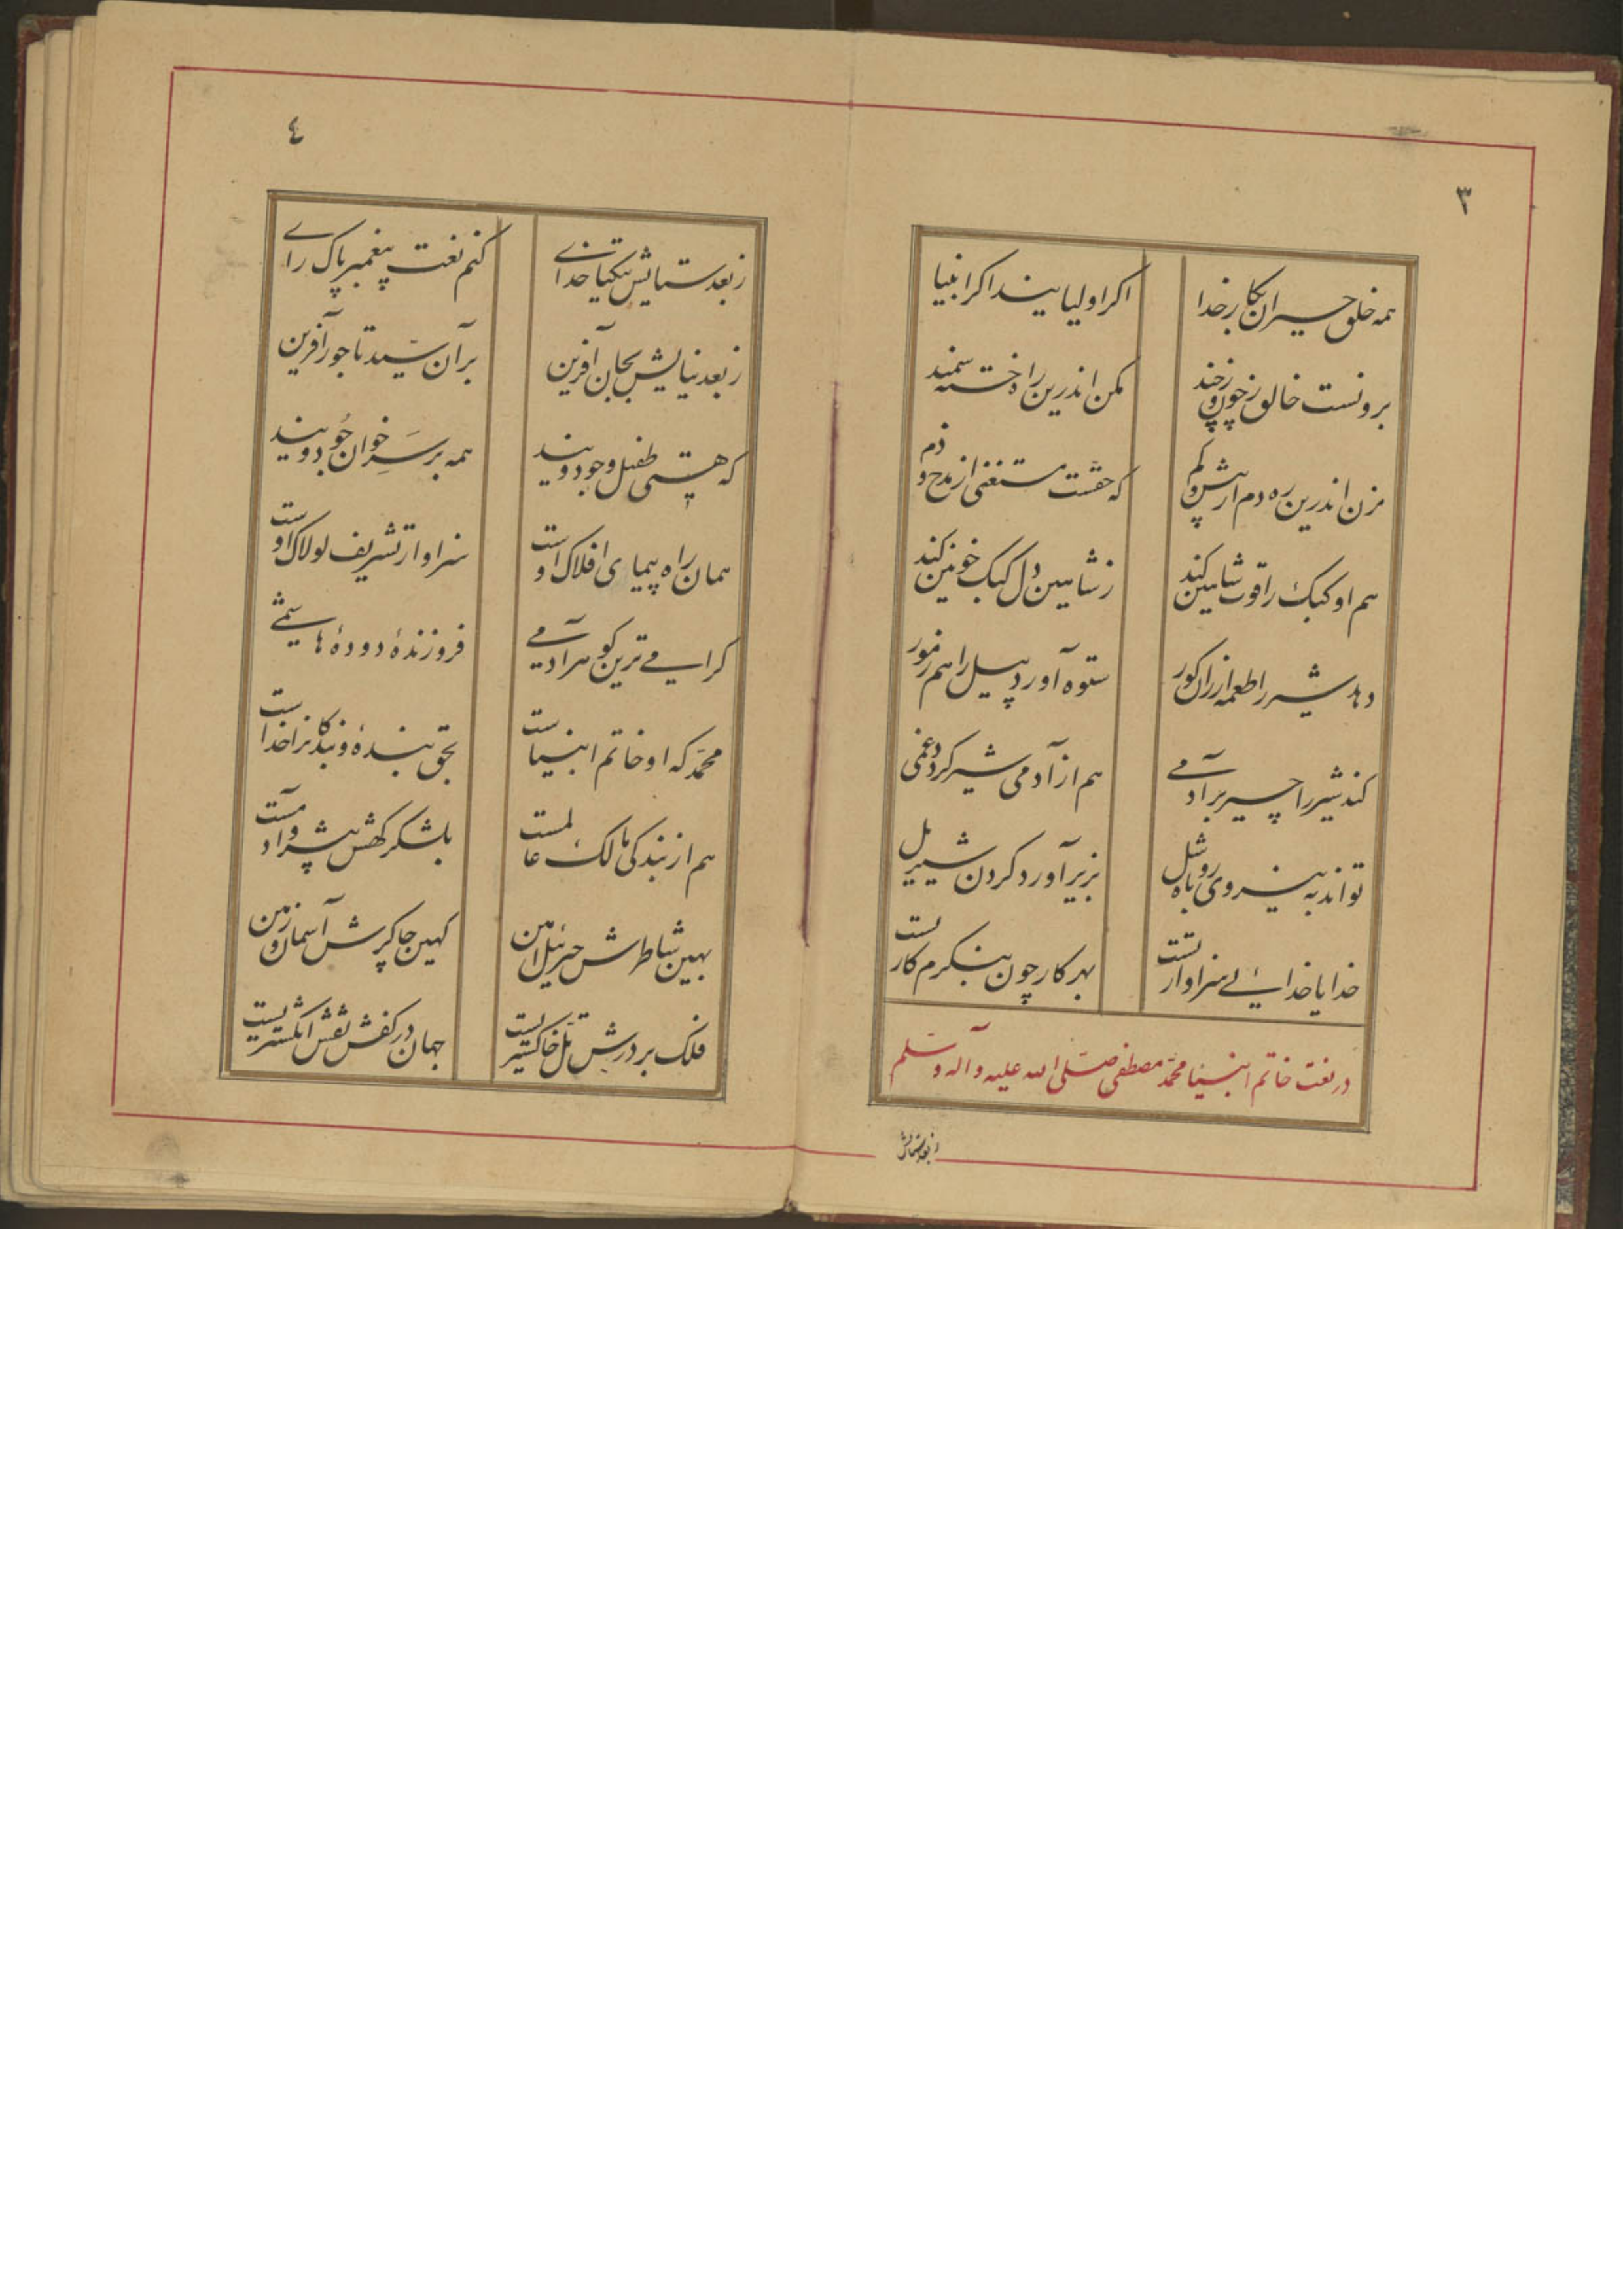 ۳
همه خلق حیران بکار خدا
اکر اولیایند اکر انبیا
برونست خالق ز چون و ز چند
مکن اندرین راه خسته سمند
مزن اندرین ره دم از بیش و کم
که حقست مستغنی از مدح و ذم
هم او کبک را قوت شاهین کند
ز شاهین دل کبک خونین کند
دهد شیر را طعمه از ران کور
ستوه آورد پیل را هم ز مور
کند شیر را چیر بر آدمے
هم از آدمی شیر کردد غمی
تواند به نیروی روباه شل
بزیر آورد کردن شیر یل
خدایا خدائے سزاوار تست
بهر کار چون بنکرم کار تست
در نعت خاتم انبیا محمّد مصطفی صلّی الله علیه و آله و سلّم
ز بعد ستایش
٤
ز بعد ستایش بیکتا خداے
کنم نعت پیغمبر پاک راے
ز بعد نیایش بجان آفرین
بر آن سیّد تاجور آفرین
که هستی طفیل وجود ویند
همه بر سَرِ خوان جُود ویند
همان راه پیمای افلاک اوست
سزاوار تشریف لولاک اوست
کرامے ترین کوهر آدمے
فروزندهٔ دودهٔ هاشمے
محمّد که او خاتم انبیاست
بحق بنده و بندکانرا خداست
هم از بندکی مالک عالمست
بلشکر کهش پیشرو آدمست
بهین شاطرش جبرئیل امین
کهین چاکرش آسمان و زمین
فلک بر درش تلّ خاکستریست
جهان در کفش نقش انکشتریست